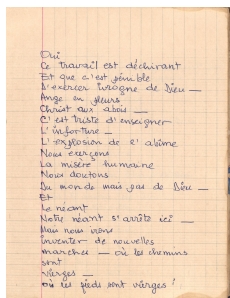 Oui
Ce travail est déchirant
Et que c'est pénible
D'exercer ivrogne de Dieu —
Ange en pleurs
Christ aux abois —
C'est triste d'enseigner
L'infortune —
L'explosion de l'abîme
Nous
La misère humaine
Nous doutons
Du monde mais pas de Dieu —
Et
Le néant
Notre néant s'arrête ici —
Mais nous irons
inventer de nouvelles
marches — où les chemins
sont
vierges —
où les pieds sont vierges !